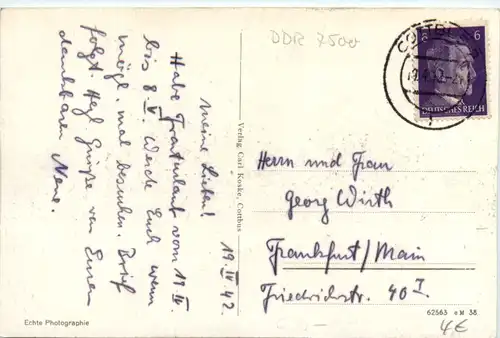 DDR 7500
COTTBUS
6
DEUTSCHES REICH
19 IV 42
Meine Lieben!
Habe Fronturlaub vom 18. IV.
bis 8. V. Werde Euch wenn
mögl. mal besuchen. Brief
folgt. Hzl. Grüße von Eurem
dankbaren
Verlag Carl Koske, Cottbus
Herrn und Frau
Georg Wirth
Frankfurt/Main
Friedrichstr. 40 I
Echte Photographie
62563 e M 38
4€